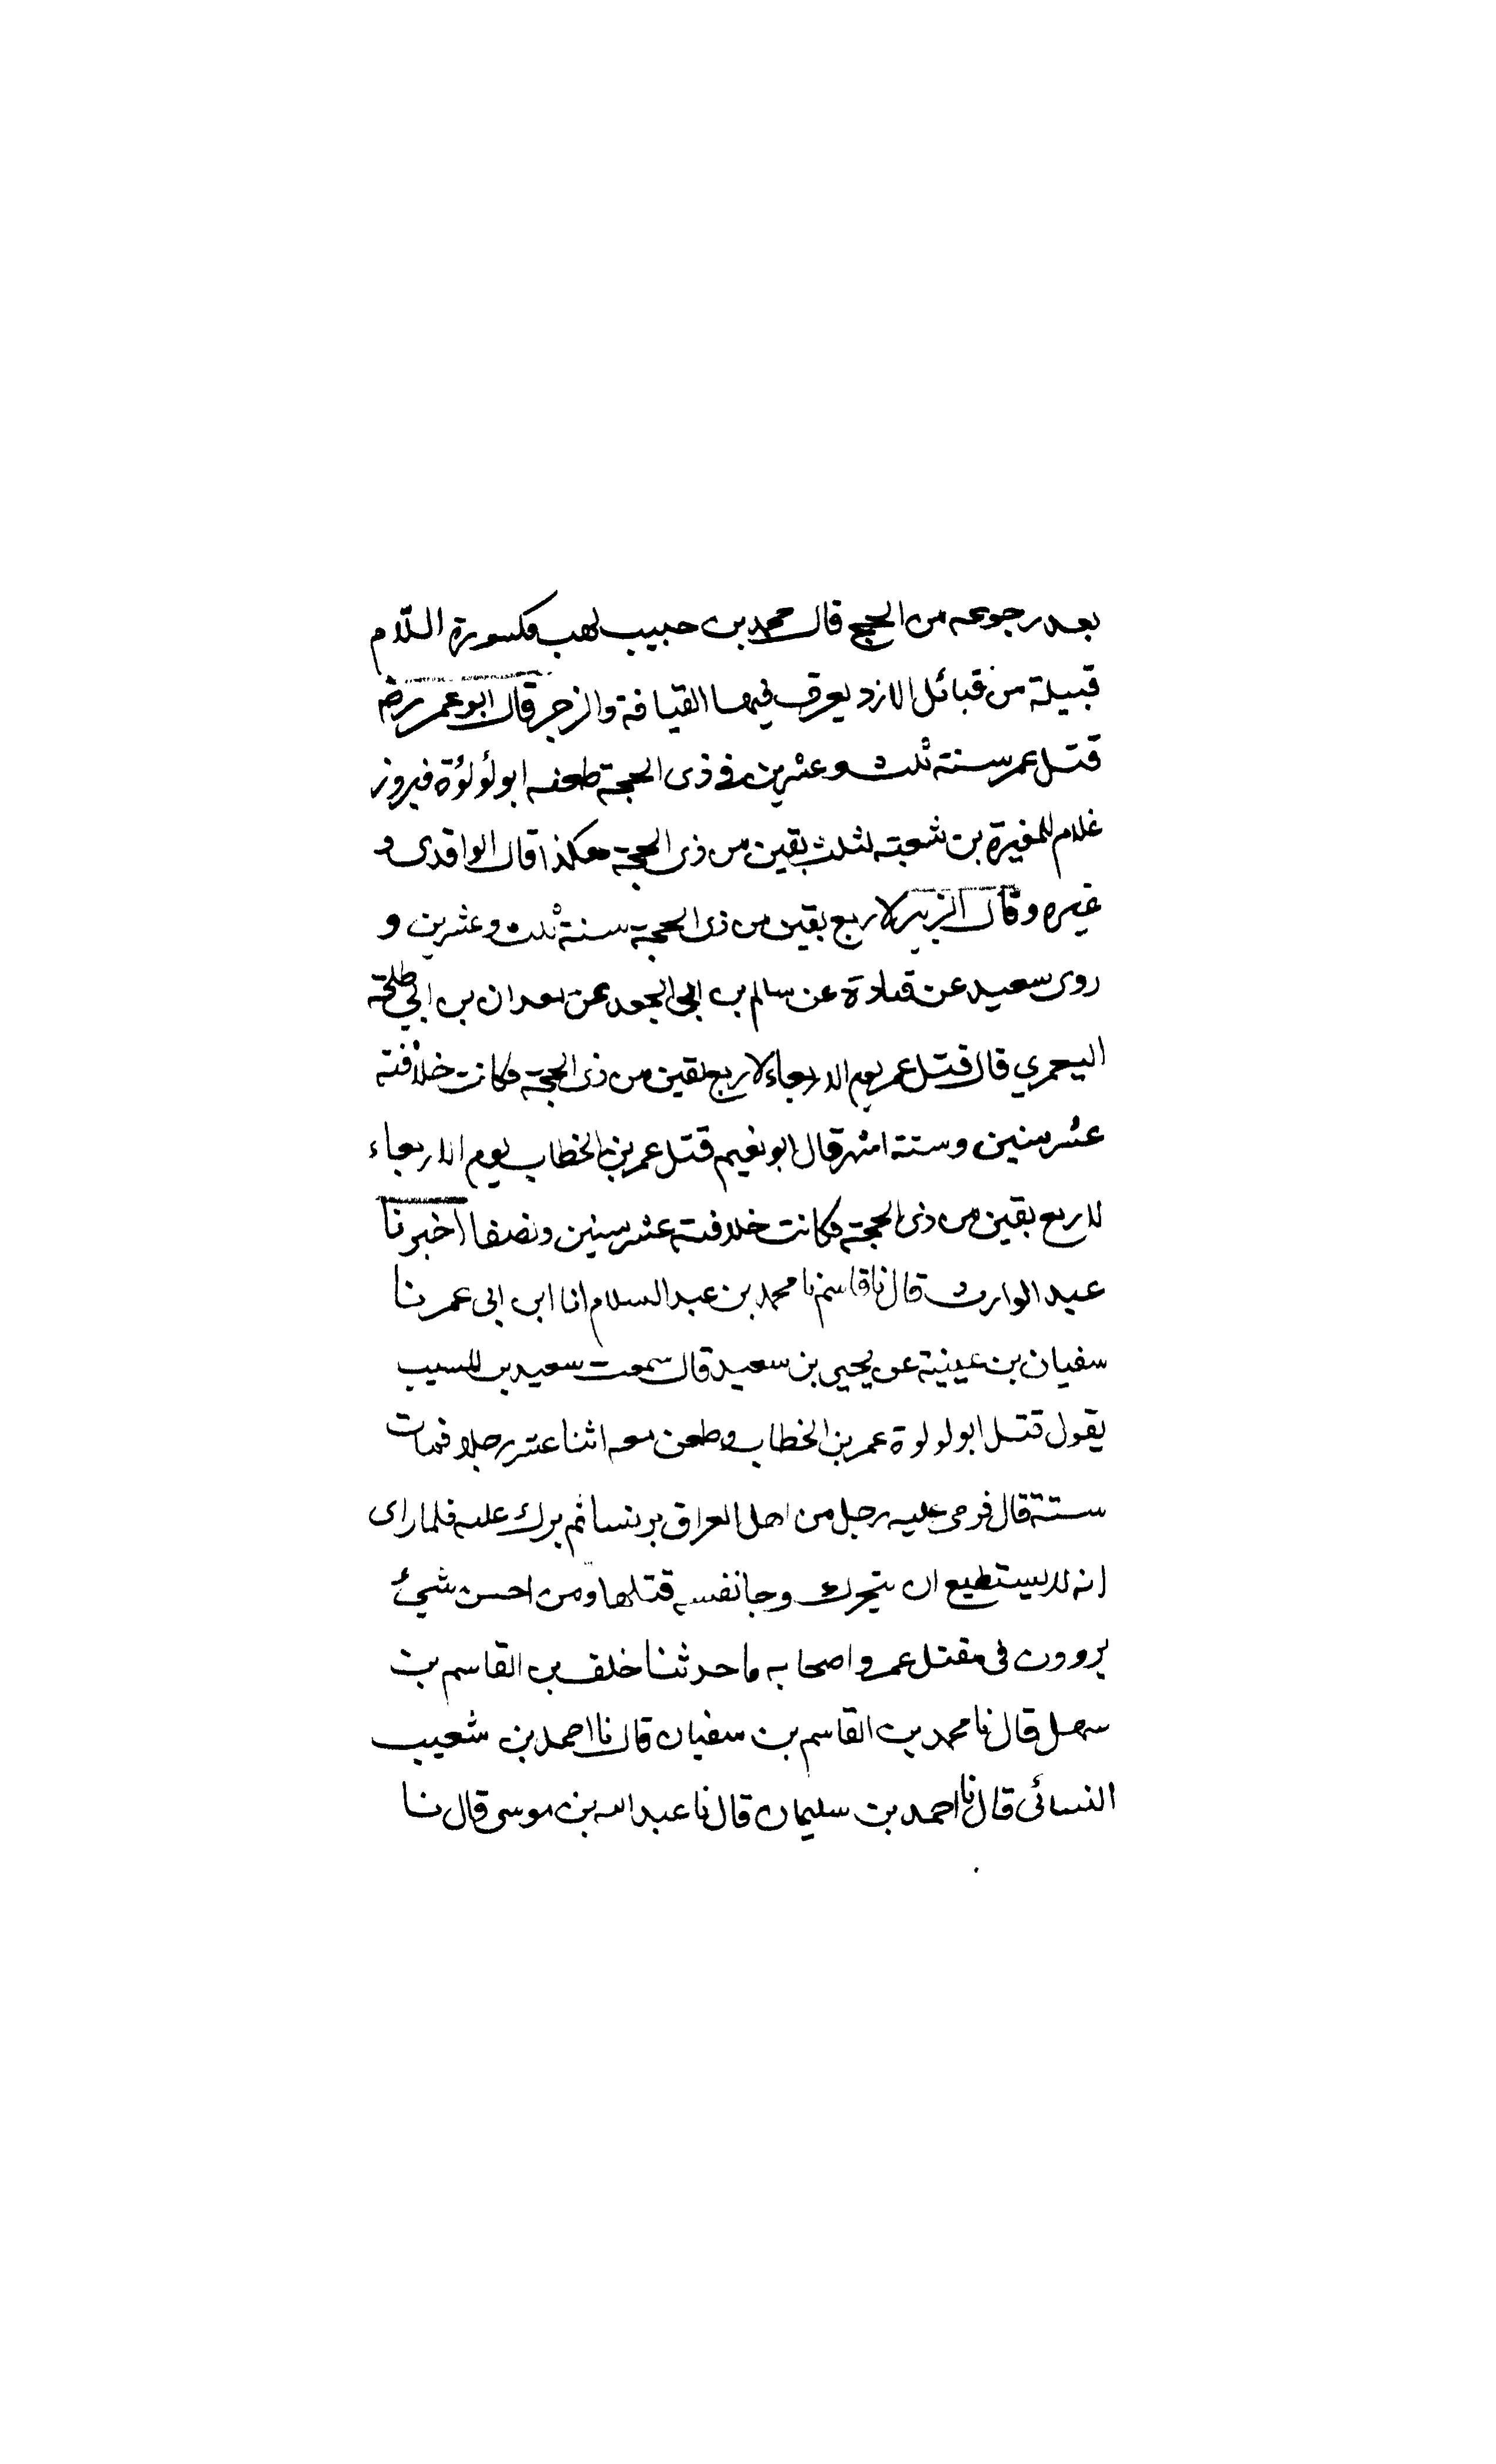 بعد رجوعه من الحج قال محمد بن حبيب لهب مكسورة اللام
قبيلة من قبائل الازد يعرف فيها القيافة والزجر قال ابو عمر رضه
قتل عمر سنته ثلث وعشرين فى ذى الحجة طعنه ابو لؤلؤة فيروز
غلام للمغيرة بن شعبته لثلث بقين من ذى الحجة هكذا قال الواقدى و
غيره وقال الزبير لاربع بقين من ذى الحجة سنة ثلث وعشرين و
روى سعيد عن قتادة عن سالم بن ابى الجعد عن معدان بن ابي طلحة
اليعمري قال قتل عمر يوم الاربعاء لاربع بقين من ذى الحجة وكانت خلافته
عشر سنين وستة اشهر قال ابو نعيم قتل عمر بن الخطاب يوم الاربعاء
لاربع بقين من ذى الحجة وكانت خلافته عشر سنين ونصفا اخبرنا
عبد الوارث قال نا قاسم نا محمد بن عبد السلام انا ابن ابى عمر نا
سفيان بن عيينة عن يحيى بن سعيد قال سمعت سعيد بن المسيب
يقول قتل ابو لولوة عمر بن الخطاب وطعن معه اثنا عشر رجلا فمات
ستة قال فرمى عليه رجل من اهل العراق برنسا ثم برك عليه فلما راى
انه لا يستطيع ان يتحرك وجا نفسه قتلها ومن احسن شيئ
يروون فى مقتل عمر واصحابه ما حدثنا خلف بن القاسم بن
سهل قال نا محمد بن القاسم بن سفيان قال نا احمد بن شعيب
النسائى قال نا احمد بن سليمان قال نا عبد الله بن موسى قال نا